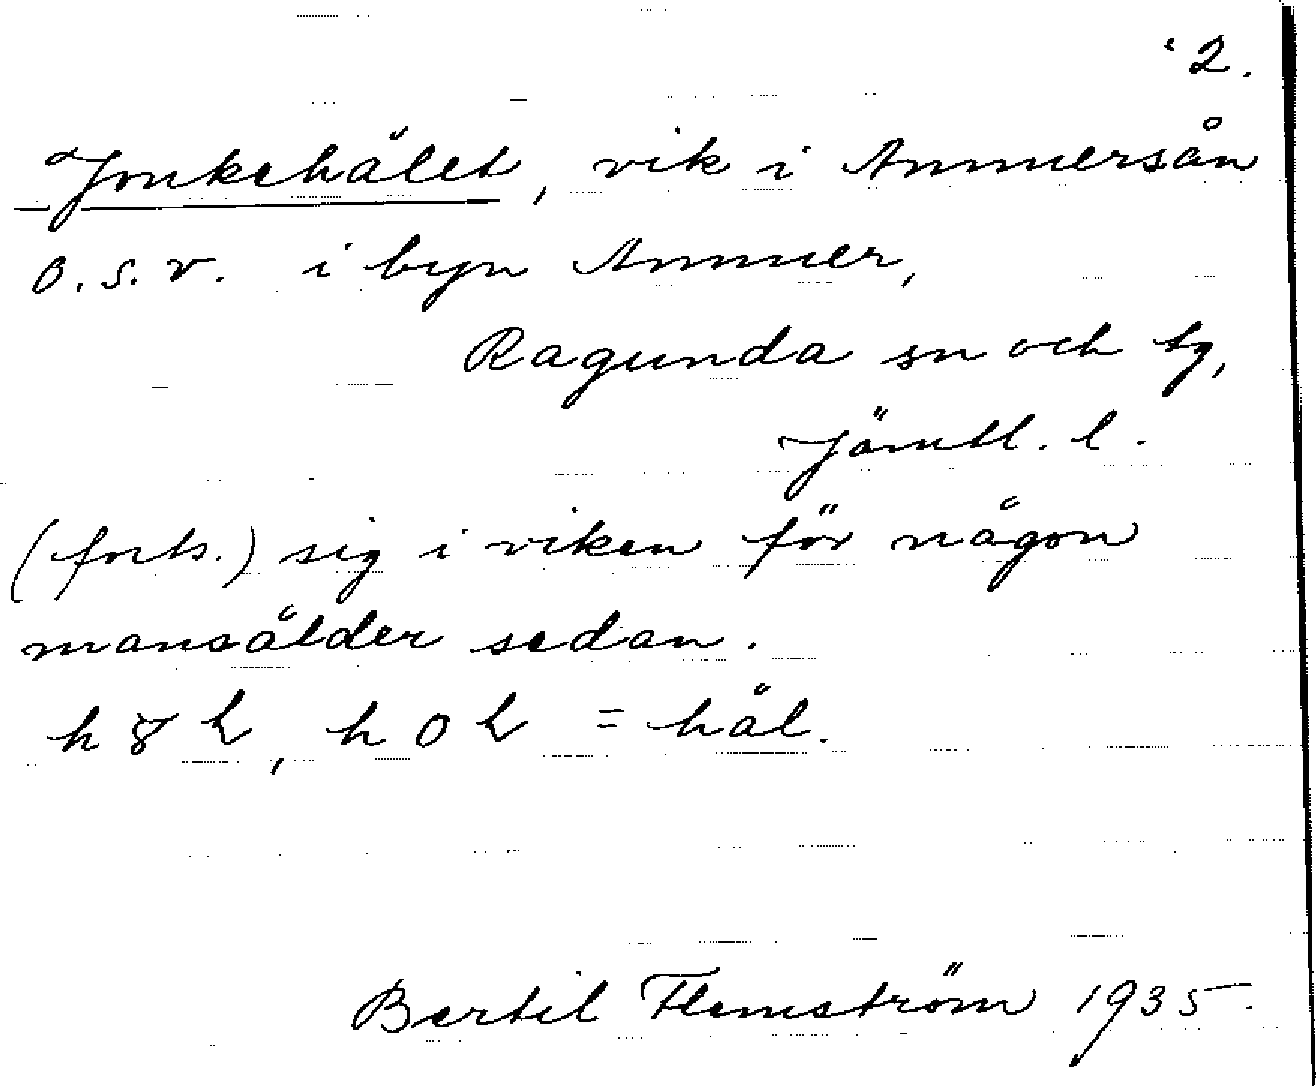 2.
Jonkehålet, vik i Ammersån
o.s.v. i byn Ammer,
Ragunda sn och tg,
Jämtl. l.
(forts.) sig i viken för någon
mansålder sedan.
 = hål.
Bertil Flemström 1935.